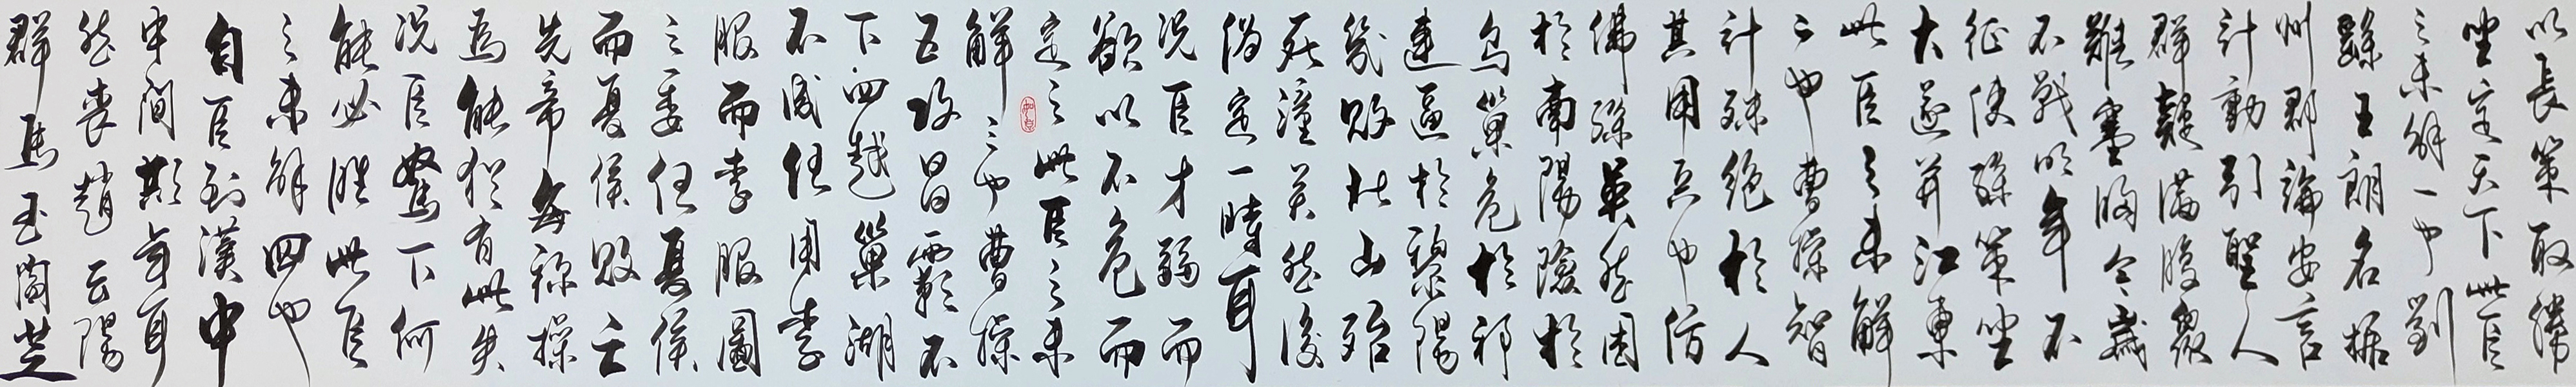 以長策取勝
坐定天下此臣
之未解一也劉
繇王朗各據
州郡論安言
計動引聖人
群疑滿腹衆
難塞胸今歲
不戰明年不
征使孫策坐
大遂并江東
此臣之未解
二也曹操智
計殊絕於人
其用兵也仿
佛孫吳然困
於南陽險於
烏巢危於祁
連逼於黎陽
幾敗北山殆
死潼關然後
偽定一時耳
況臣才弱而
欲以不危而
定之此臣之未
解三也曹操
五攻昌霸不
下四越巢湖
不成任用李
服而李服圖
之委任夏侯
而夏侯敗亡
先帝每稱操
為能猶有此失
況臣駑下何
能必勝此臣
之未解四也
自臣到漢中
中間期年耳
然喪趙雲陽
群馬玉閻芝